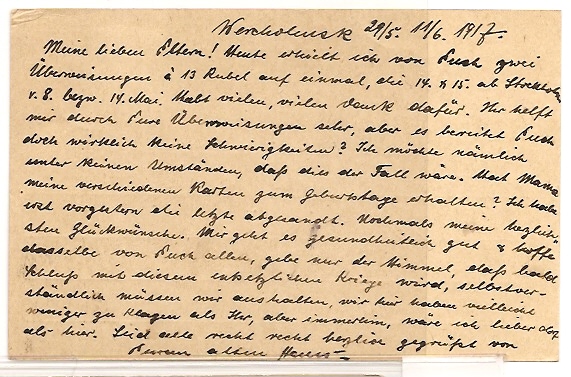 Wercholensk 29/5. 11/6. 1917.
Meine lieben Eltern! Heute erhielt ich von Euch zwei
Überweisungen à 13 Rubel auf einmal, die 14. & 15. ab Stockholm
v. 8. bezw. 14. Mai. Habt vielen, vielen Dank dafür. Ihr helft
mir durch Eure Überweisungen sehr, aber es bereitet Euch
doch wirklich keine Schwierigkeiten? Ich möchte nämlich
unter keinen Umständen, daß dies der Fall wäre. Hat Mama
meine verschiedenen Karten zum Geburtstage erhalten? Ich habe
erst vorgestern die letzte abgesandt. Nochmals meine herzlich-
sten Glückwünsche. Mir geht es gesundheitlich gut & hoffe
dasselbe von Euch allen, gebe nur der Himmel, daß bald
Schluß mit diesem entsetzlichen Kriege wird, selbstver-
ständlich müssen wir aushalten, wir hier haben vielleicht
weniger zu klagen als Ihr, aber immerhin, wäre ich lieber dort
als hier. Seid alle recht recht herzlich gegrüßt von
Eurem alten Hans